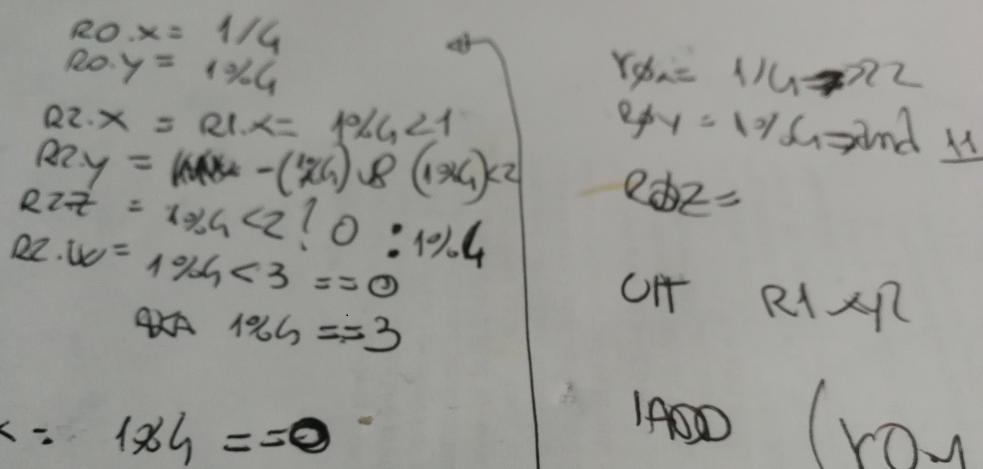 R0.x = 1/4
R0.y = 1%4
R2.x = R1.x = 1%4<1
R2.y = -(1%4) & (1%4)<2
R2.z = 1%4<2! 0 : 1%4
R2.w = 1%4<3 == 0
1%4 == 3
= 1%4 == 0
= 1/4 => 22
R0y = 1%4 => and 11
R0z =
R1 xyz
IADD (r0